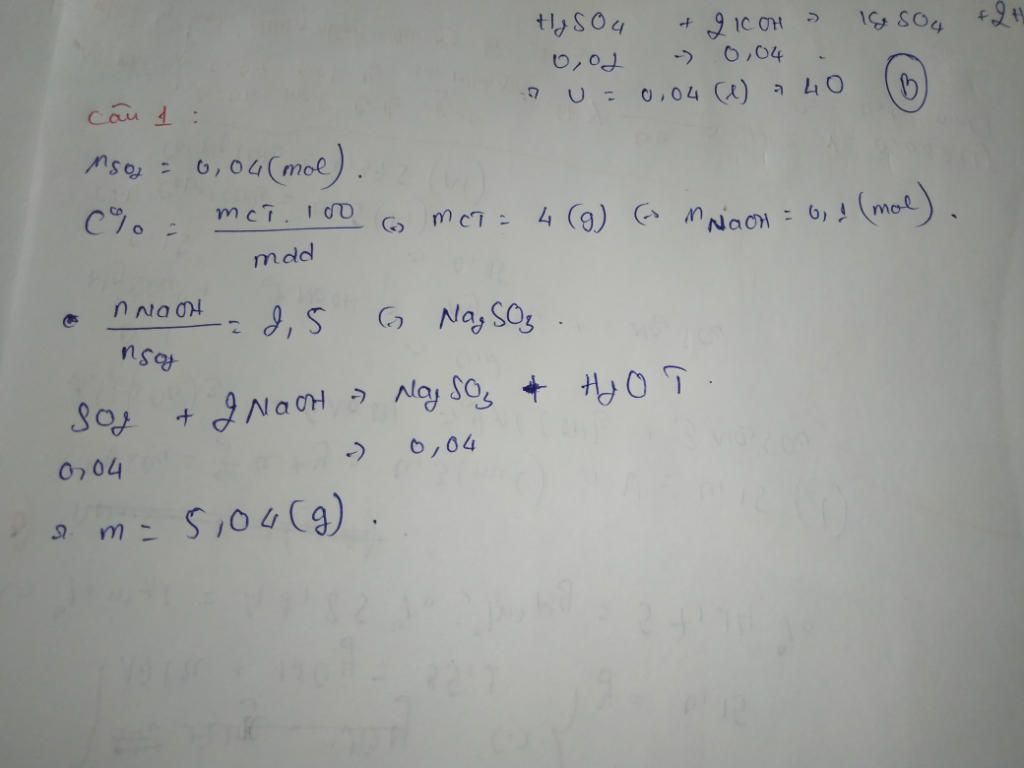 H₂SO₄ + 2KOH → K₂SO₄ + 2H
0,02 → 0,04
→ V = 0,04 (l) → 40 (B)
Câu 1 :
nSO₂ = 0,04 (mol).
C% = mCT.100 / mdd ⇔ mCT = 4 (g) ⇔ nNaOH = 0,1 (mol).
• nNaOH / nSO₂ = 2,5 ⇔ Na₂SO₃.
SO₂ + 2NaOH → Na₂SO₃ + H₂O
0,04 → 0,04
→ m = 5,04 (g).